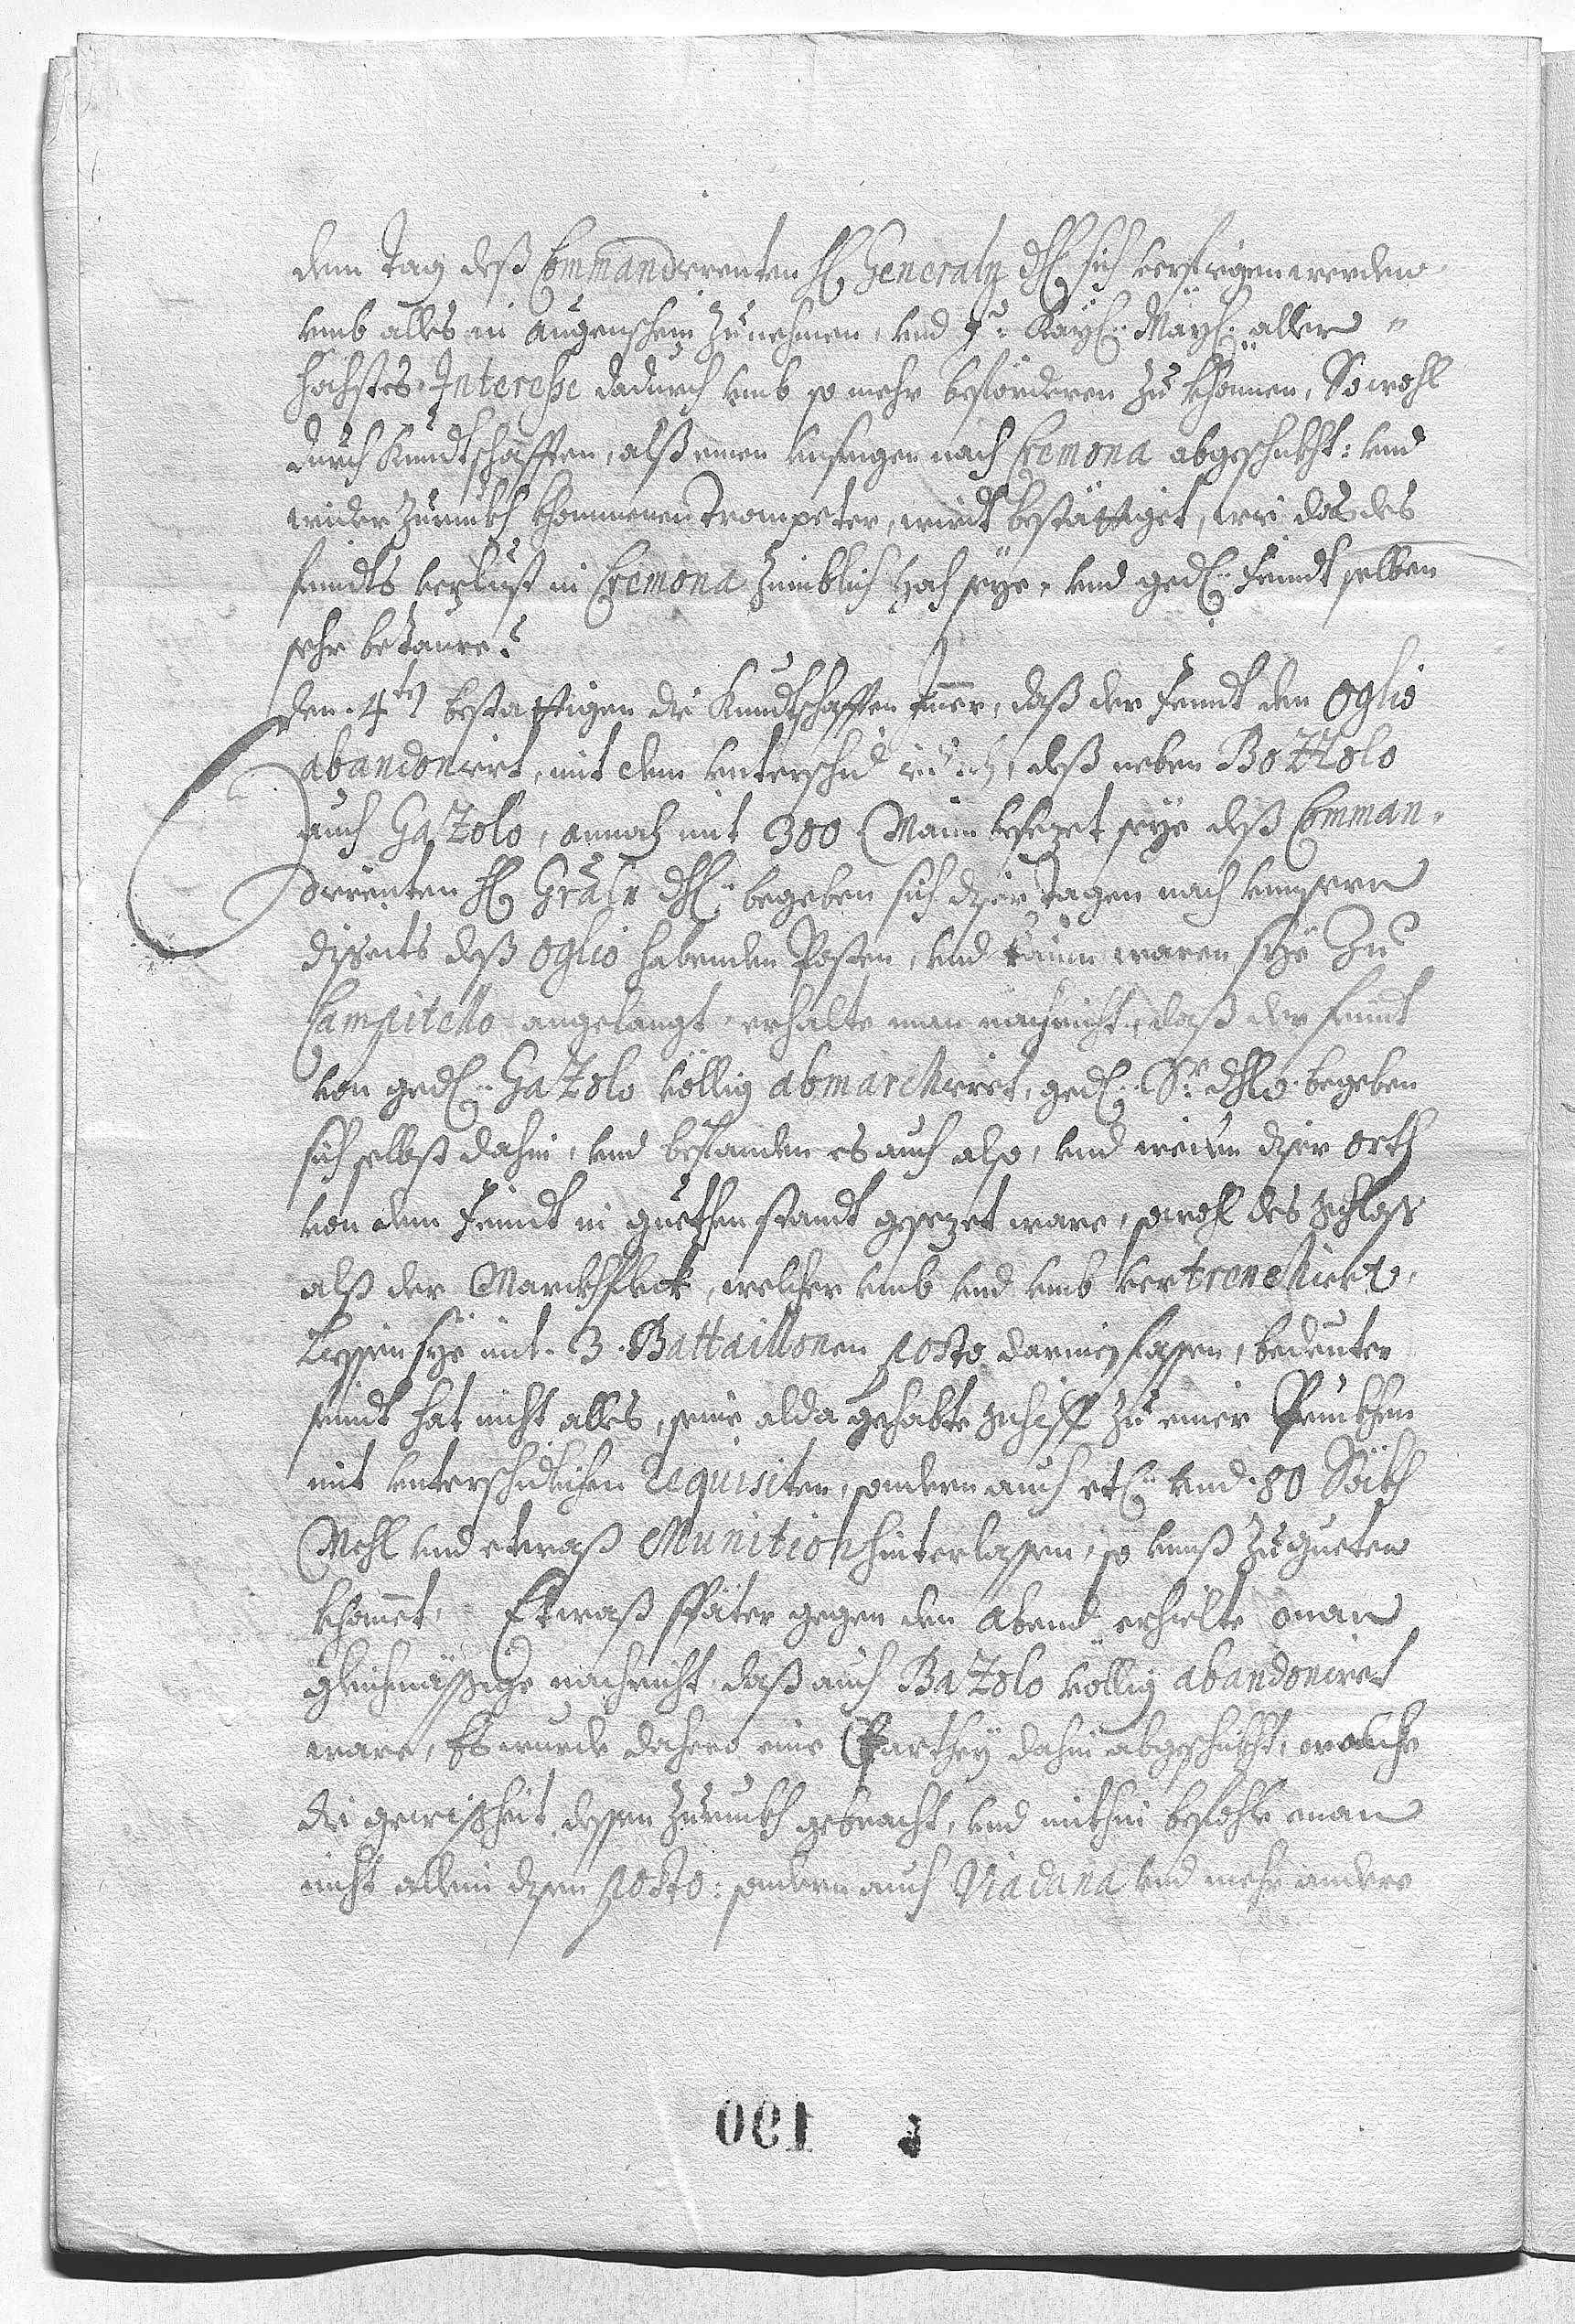 dem Tag deß Commandirenten H: Generaln Dhl: sich verfiegen werden
umb alles in augenschein zunehmen, und Jr: Kayl: Mayl: aller-
höchstes Interesse dadurch umb so mehr beförderen zu khönnen, So wohl
durch Kundtschafften, alß einen unsrigen nach Cremona abgeschikht: und
wider zuruckh khommenen Trompeter, wirdt bestättiget, wie das des
feindts verlust in Cremona zimblich hoch seye, und ged: Feindt selben
sehr betaure.
den 4ten bestattigen die Kundtschafften immer, daß der Feindt den Oglio
abandonirt, mit dem unterschid, daß neben Bozzolo
auch Gazolo, annoch mit 300 Mann besezet seye deß Comman-
direnten H: Grals Dhl: begeben sich diser Tagen nach unsern
disseits deß Oglio habenden Posten, und kaum waren sye zu
Campitello angelangt, erhalte man nachricht, daß der feindt
von ged: Gazolo völlig abmarchiret, ged: Sr: Dhl: begeben
sich selbst dahin, und befanden es auch also, und weilen diser orth
von dem Feindt in guethen standt gesezet ware, sowohl das schloss
alß der Marckhflekh, welcher umb und umb vertrenchiert,
liessen sye mit 3 Battaillonen posto darinen fassen, bedeuter
feindt hat nicht alles, seine alda gehabte schiff zu einer Prukhen
mit unterschidlichen Requisiten, sondern auch etl: und 80 Säkh
Mehl und etwaß Munition hinterlassen, so unß zu gueten
khommet, Etwaß später gegen den Abend erhielte man
gleichmässige nachricht, daß auch Bazolo völlig abandoniret
ware, Es wurde dahero eine Parthey dahin abgeschikht, welche
die gewißheit dessen zuruckh gebracht, und mithin befohle man
nicht allein disen posto: sondern auch Viadana und mehr andere
190